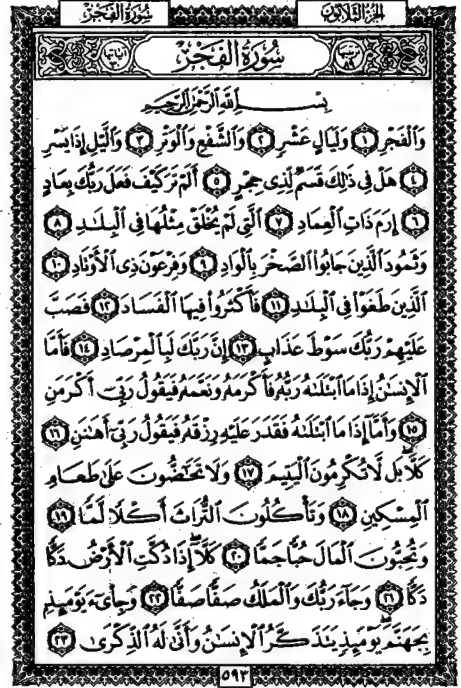 سُورَةُ الفَجْرِ
الجُزْءُ الثَّلَاثُونَ
سُورَةُ الفَجْرِ
بِسْمِ اللَّهِ الرَّحْمَٰنِ الرَّحِيمِ
وَالْفَجْرِ ۝١ وَلَيَالٍ عَشْرٍ ۝٢ وَالشَّفْعِ وَالْوَتْرِ ۝٣ وَاللَّيْلِ إِذَا يَسْرِ
۝٤ هَلْ فِي ذَٰلِكَ قَسَمٌ لِّذِي حِجْرٍ ۝٥ أَلَمْ تَرَ كَيْفَ فَعَلَ رَبُّكَ بِعَادٍ
۝٦ إِرَمَ ذَاتِ الْعِمَادِ ۝٧ الَّتِي لَمْ يُخْلَقْ مِثْلُهَا فِي الْبِلَادِ ۝٨
وَثَمُودَ الَّذِينَ جَابُوا الصَّخْرَ بِالْوَادِ ۝٩ وَفِرْعَوْنَ ذِي الْأَوْتَادِ ۝١٠
الَّذِينَ طَغَوْا فِي الْبِلَادِ ۝١١ فَأَكْثَرُوا فِيهَا الْفَسَادَ ۝١٢ فَصَبَّ
عَلَيْهِمْ رَبُّكَ سَوْطَ عَذَابٍ ۝١٣ إِنَّ رَبَّكَ لَبِالْمِرْصَادِ ۝١٤ فَأَمَّا
الْإِنسَانُ إِذَا مَا ابْتَلَاهُ رَبُّهُ فَأَكْرَمَهُ وَنَعَّمَهُ فَيَقُولُ رَبِّي أَكْرَمَنِ
۝١٥ وَأَمَّا إِذَا مَا ابْتَلَاهُ فَقَدَرَ عَلَيْهِ رِزْقَهُ فَيَقُولُ رَبِّي أَهَانَنِ ۝١٦
كَلَّا بَل لَّا تُكْرِمُونَ الْيَتِيمَ ۝١٧ وَلَا تَحَاضُّونَ عَلَىٰ طَعَامِ
الْمِسْكِينِ ۝١٨ وَتَأْكُلُونَ التُّرَاثَ أَكْلًا لَّمًّا ۝١٩
وَتُحِبُّونَ الْمَالَ حُبًّا جَمًّا ۝٢٠ كَلَّا إِذَا دُكَّتِ الْأَرْضُ دَكًّا
دَكًّا ۝٢١ وَجَاءَ رَبُّكَ وَالْمَلَكُ صَفًّا صَفًّا ۝٢٢ وَجِايءَ يَوْمَئِذٍ
بِجَهَنَّمَ يَوْمَئِذٍ يَتَذَكَّرُ الْإِنسَانُ وَأَنَّىٰ لَهُ الذِّكْرَىٰ ۝٢٣
٥٩٣